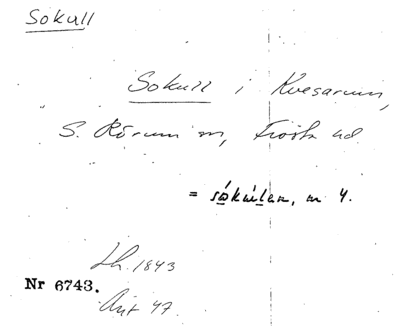 Sokull
Sokull i Kvesarum,
S. Rörum sn, Frosta hd.
= sókúlen, m 4.
Lh. 1843
Nr 6743.
Ant 47.